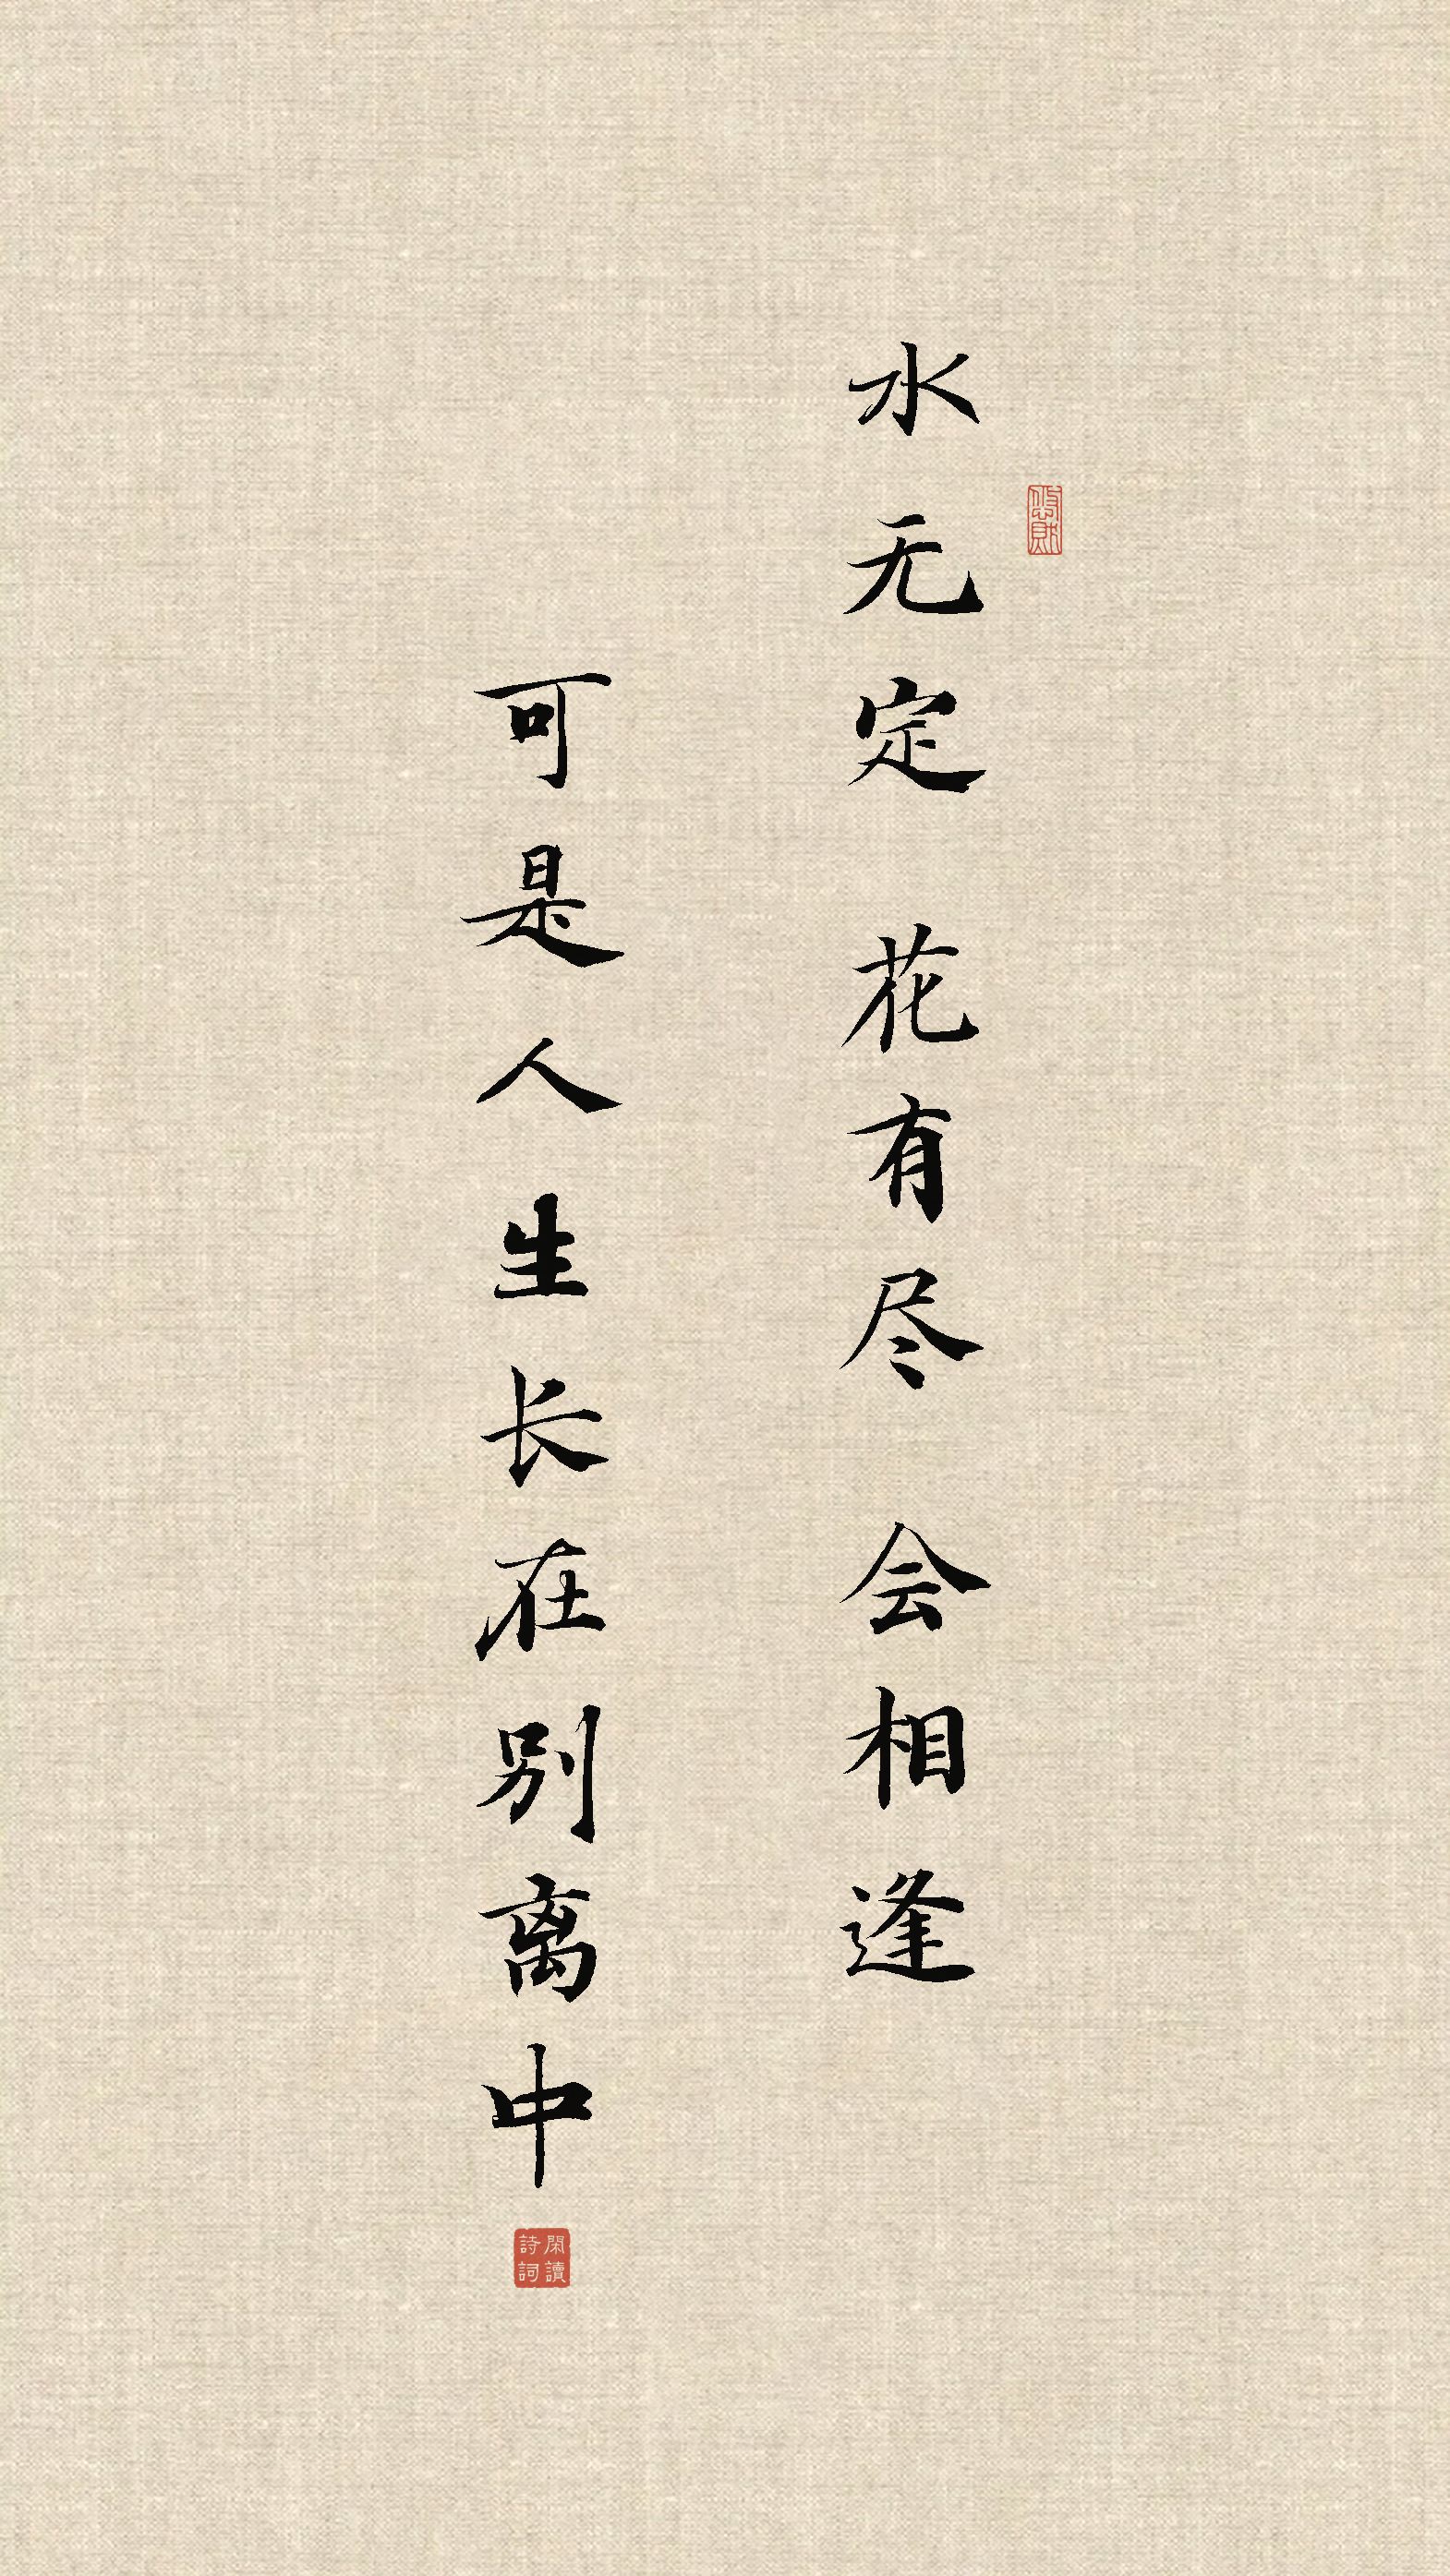 水无定 花有尽 会相逢
可是人生长在别离中
閑讀
詩詞